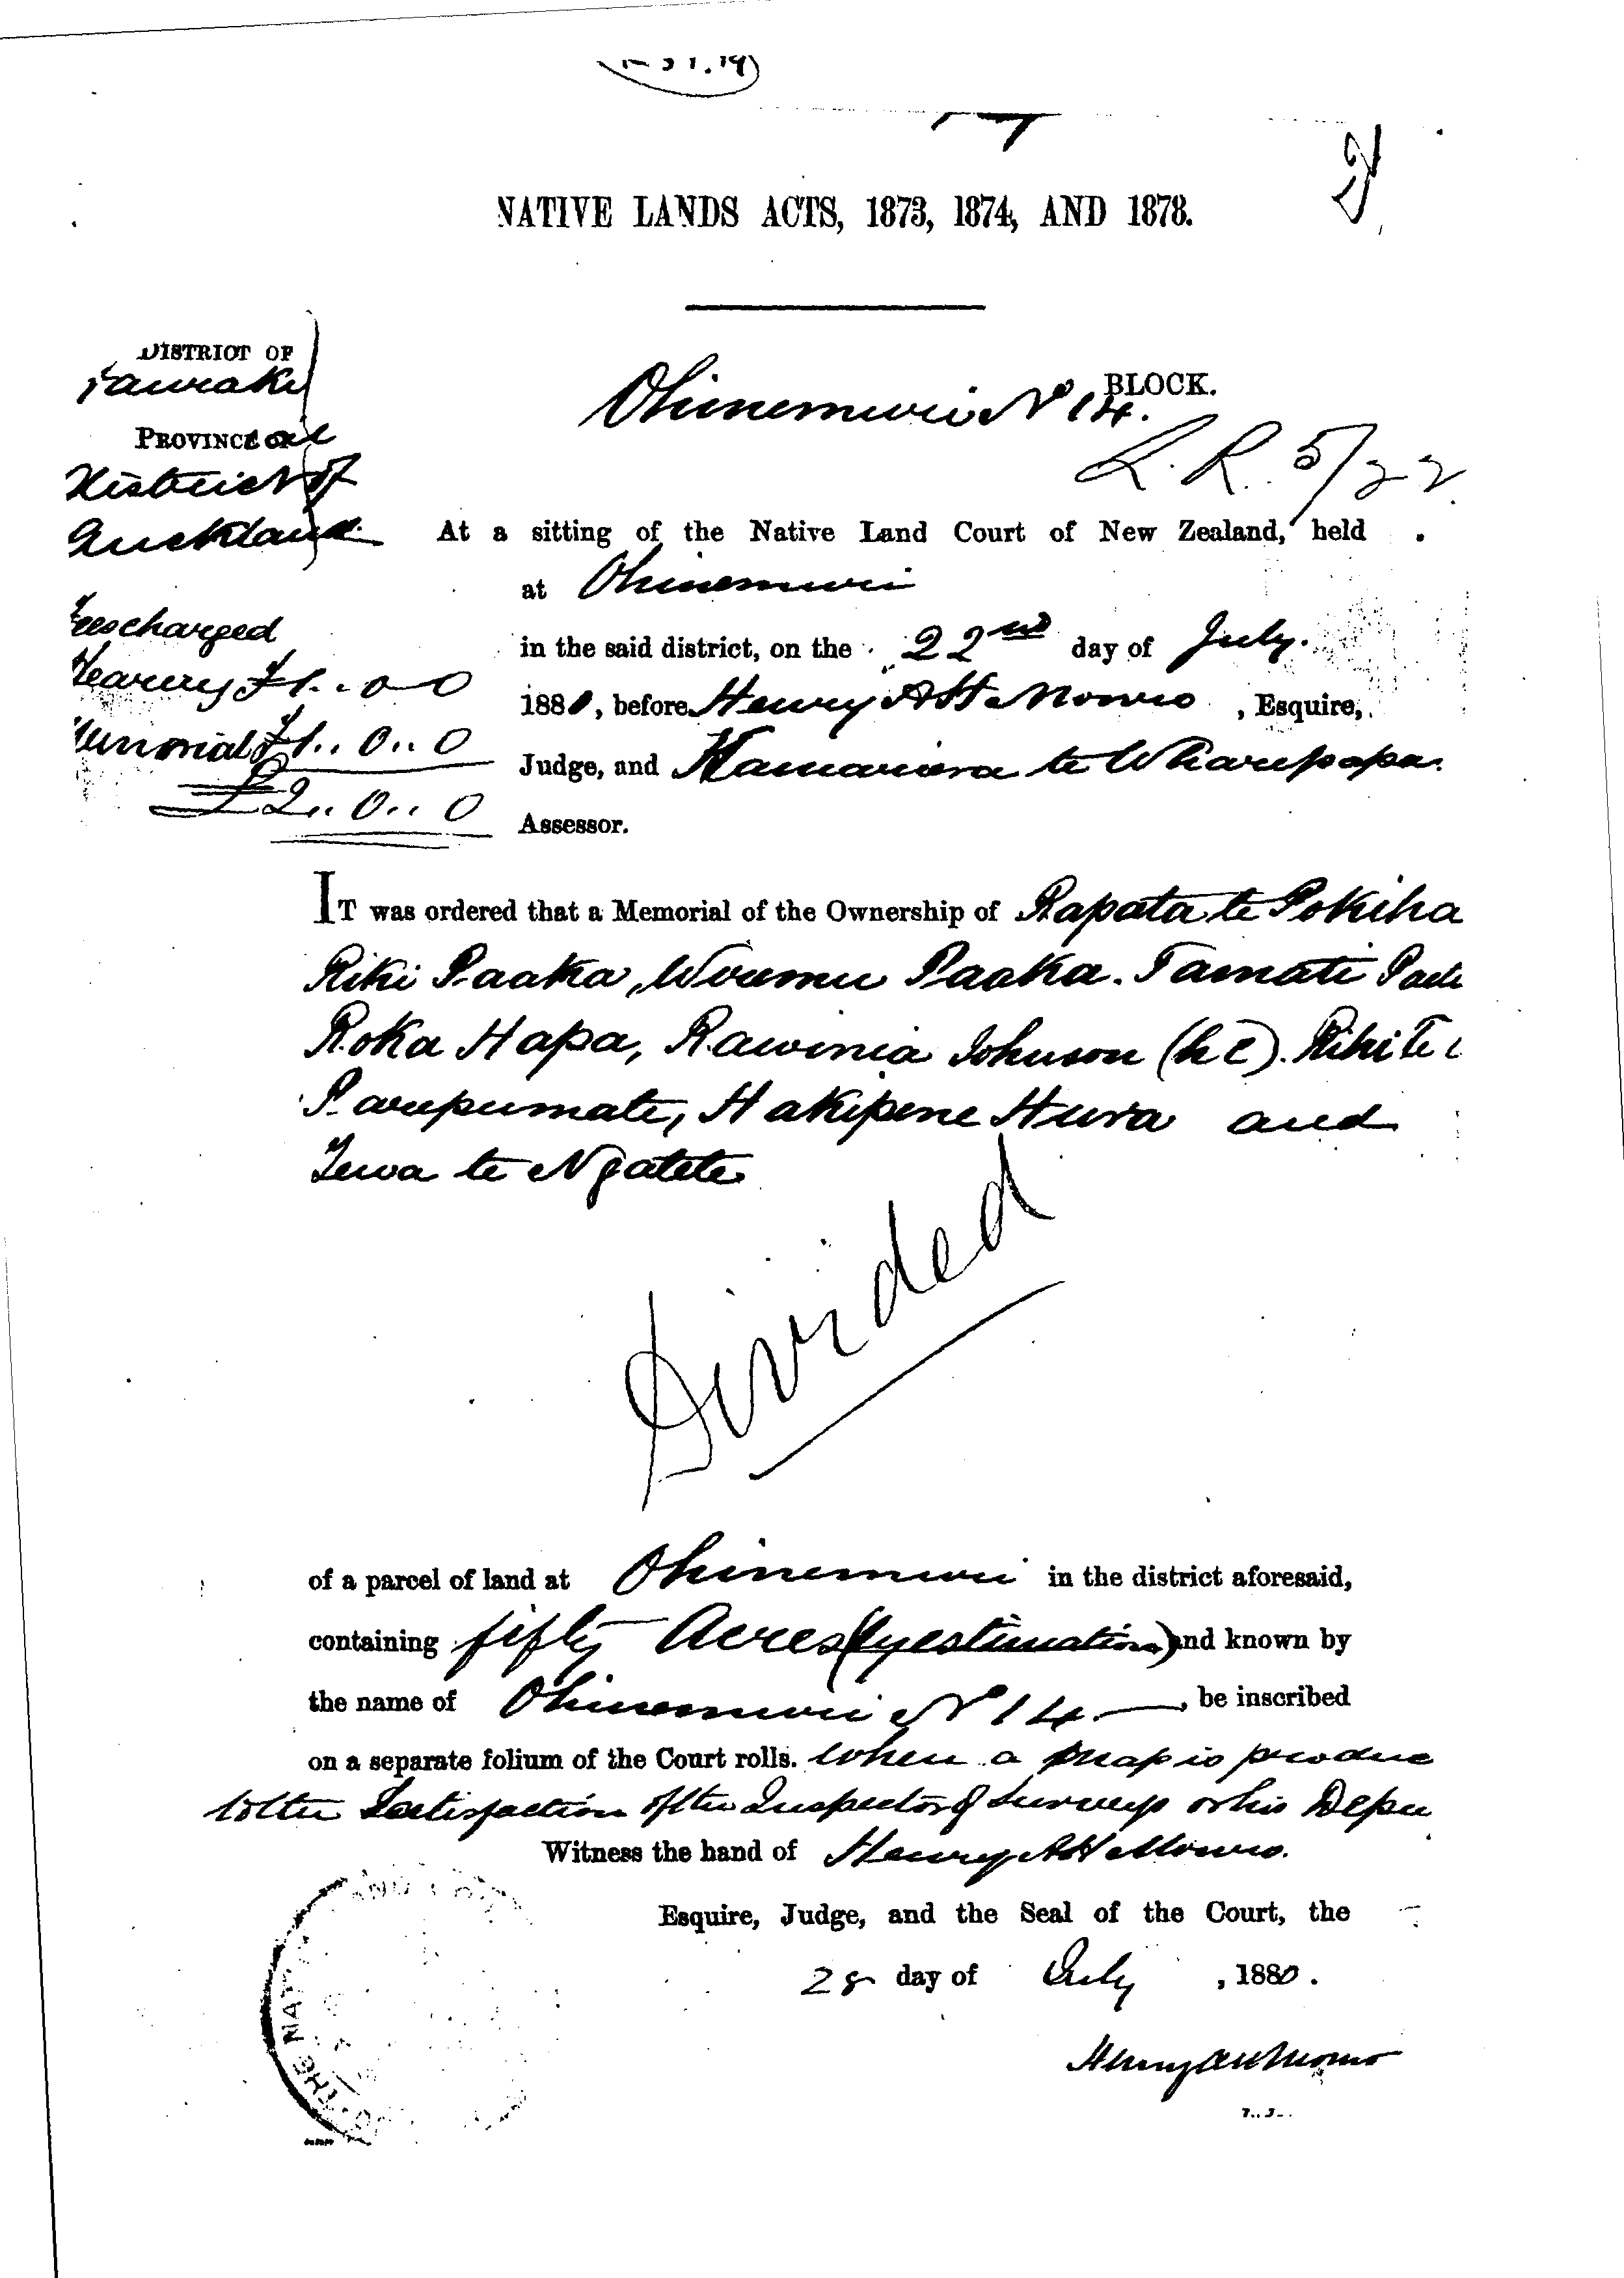 NATIVE LANDS ACTS, 1873, 1874, AND 1878.
DISTRICT OF
Hauraki
Ohinemuri No 14. BLOCK.
PROVINCE
L.R. 5/22
District of
Auckland.
At a sitting of the Native Land Court of New Zealand, held
at Ohinemuri
Fees charged
in the said district, on the 22nd day of July.
Hearing £1..0 0
1880, before Henry A H Monro, Esquire,
Memorial £1..0..0
Judge, and Hamariora te Wharepapa.
£2..0..0
Assessor.
IT was ordered that a Memorial of the Ownership of Rapata te Pokiha
Riki Paaka, Wiremu Paaka. Tamati
Roka Hapa, Rawinia Johnson (hc). Rihi Te
Parupumate, Hakipene Hura and
te Ngatete
Divided
of a parcel of land at Ohinemuri in the district aforesaid,
containing fifty Acres (by estimation) and known by
the name of Ohinemuri No 14. be inscribed
on a separate folium of the Court rolls. When a Map is produc
to the Satisfaction of the Inspector of Surveys or his Depu
Witness the hand of Henry A H Monro.
Esquire, Judge, and the Seal of the Court, the
28 day of July, 1880.
Henry A H Monro
THE NAT